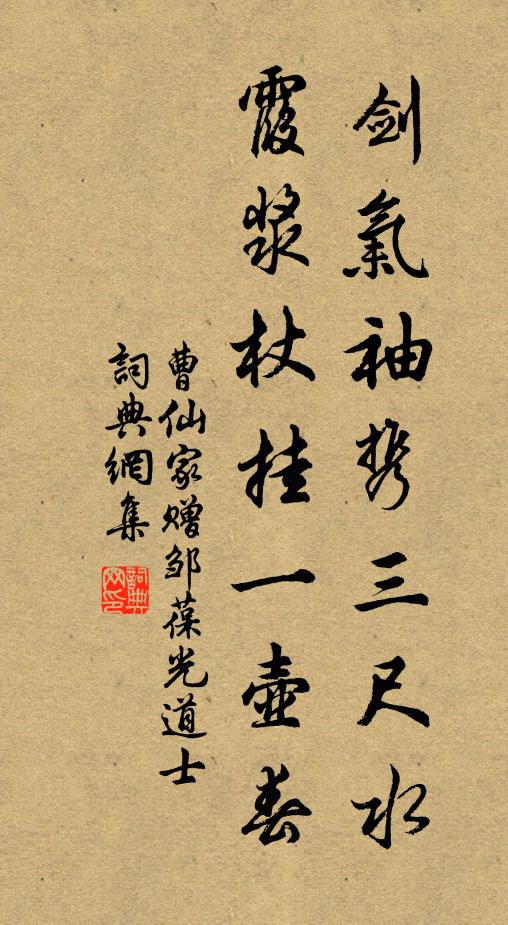 劍氣袖携三尺水
霞漿杖挂一壺春
曹仙家赠邹葆光道士
詞典網集
詞典网印